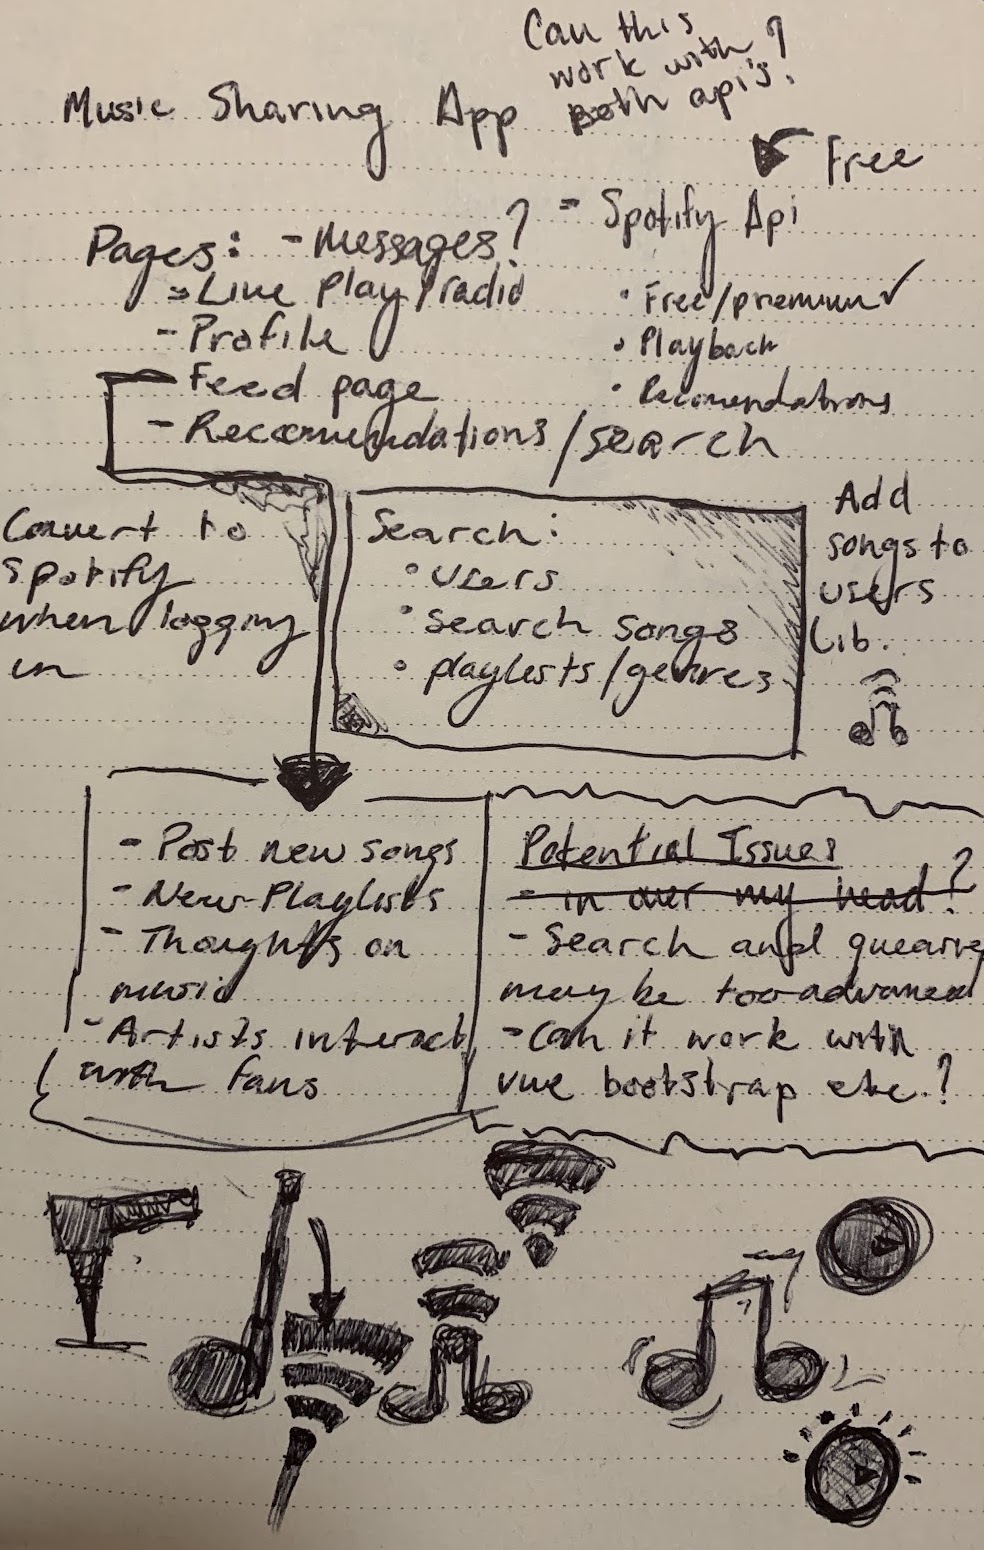 Can this
work with?
Both api's?
Music Sharing App
Free
- Spotify Api
• Free/premium ✓
• Playback
• Recomendations
Pages: - Messages?
- Live Play/radio
- Profile
- Feed page
- Reccomendations/search
Convert to
Spotify
when logging
in
Search:
• Users
• Search songs
• playlists/genres
Add
songs to
users
Lib.
- Post new songs
- New Playlists
- Thoughts on
music
- Artists interact
with fans
Potential Issues
- in over my head?
- Search and
may be too advanced
- Can it work with
vue bootstrap etc.?